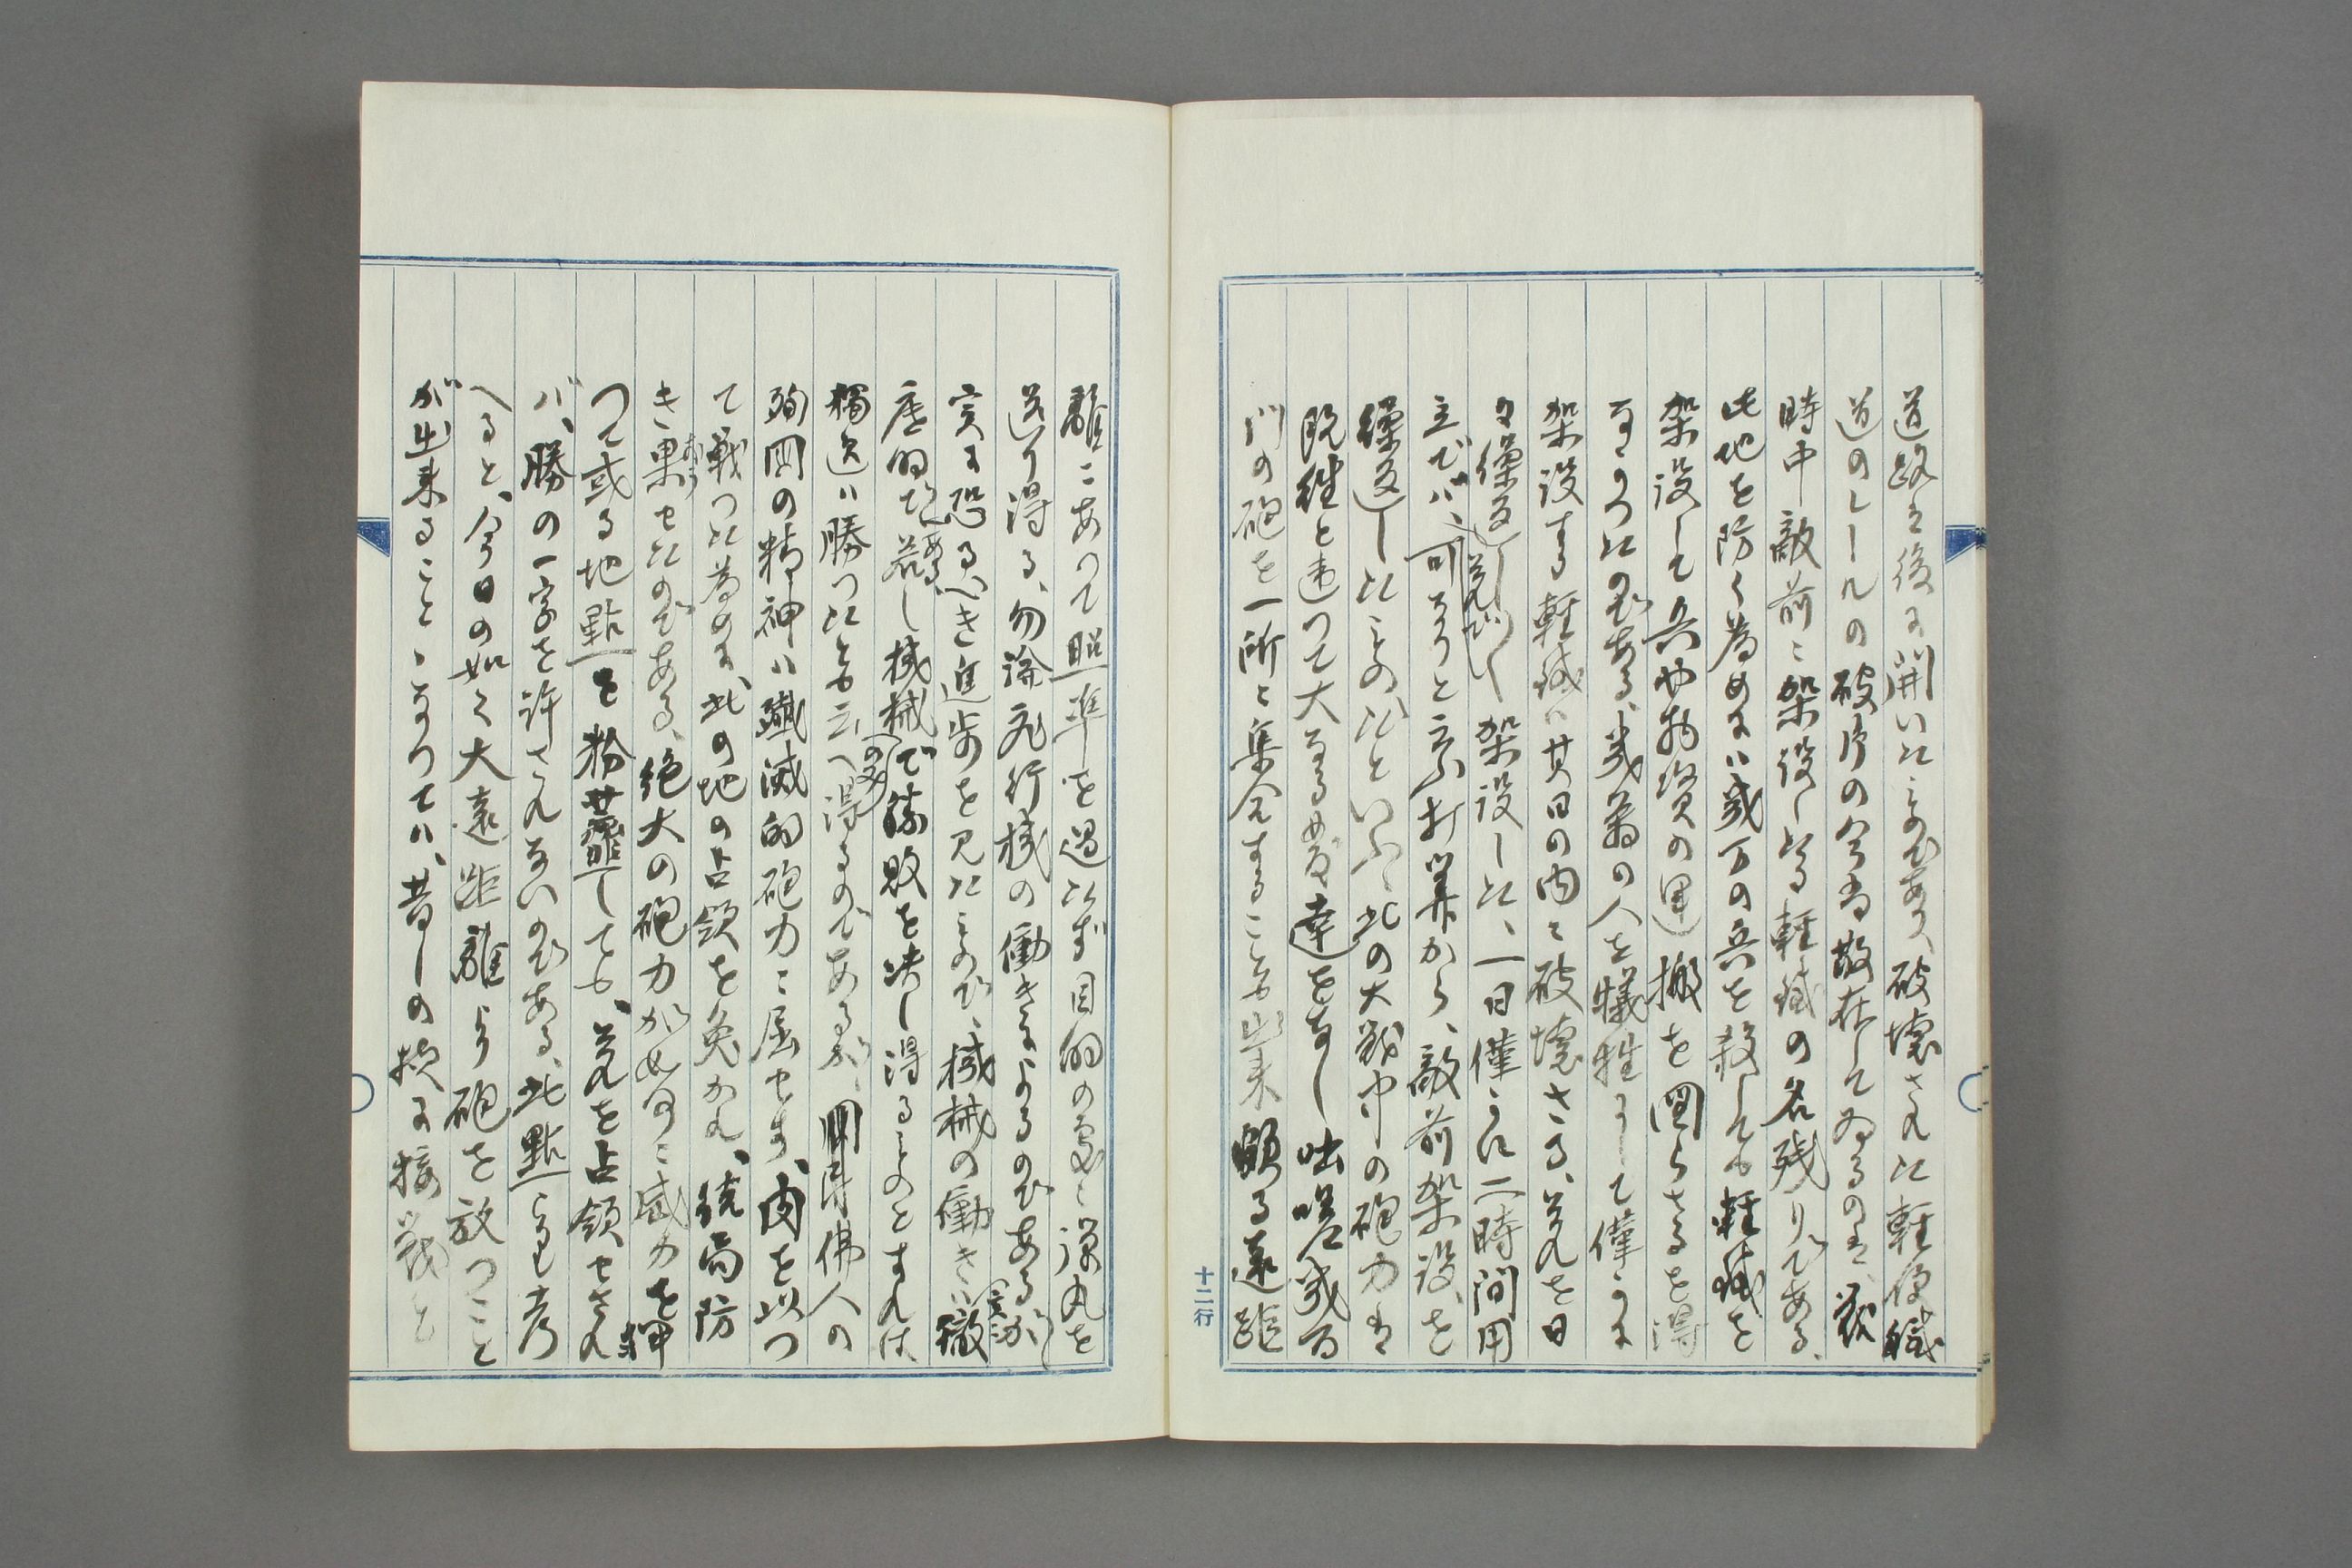 道路は後に開いたものであり、破壊された軽便鐵
道のレールの破片の今尚散在してゐるのは、戰
時中敵前に架設したる軽鐵の名残りである、
此地を防ぐ為めには幾万の兵を殺しても軽鐵を
架設して兵や物資の運搬を図らざるを得
なかつたのである、幾万の人を犠牲にして僅かに
架設する軽鐵は其日の内に破壊さる、又之を日
々繰返し〳〵架設した、一日僅かに二時間用
立てば、可なりと云ふ打算から、敵前架設を
繰返したもの、だといふ、此の大戰中の砲力は
既往と違つて大なる発達をなし咄嗟幾百
門の砲を一所に集合することも出来、頗る遠距
離にあつて照準を過たず目的の処に弾丸を
送り得る、勿論飛行機の働きによるのであるが、
実に恐るべき進歩を見たもので、機械の働きは徹
底的である、若し機械のみで勝敗を決し得るものとすれば、
獨逸は勝つたとも云へ得るのであるが、佛人の
殉国の精神は殲滅的砲力に屈せず、肉を以つ
て戰つた為めに、此の地の占領を免かれ、結局防
ぎ果せたのである、絶大の砲力が如何に威力を揮
つて或る地點を粉虀しても、之を占領せざれ
バ、勝の一字を許されないのである、此點より考
へると、今日の如く大遠距離より砲を放つこと
が出来ることゝなつては、昔しの様に接戰と
十二行